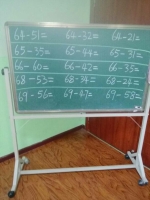 64-51= 64-32= 64-21=
65-35= 65-44= 65-31=
66-40= 66-42= 66-35=
68-53= 68-34= 68-24=
69-56= 69-47= 69-58=